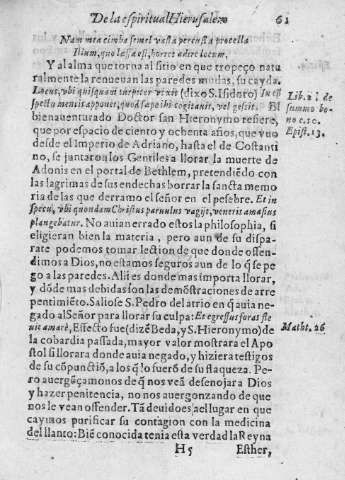 De la espiritual Hierusalem 61
Nam mea cimba semel vasta percussa procella
Illum, quo læsa est, horret adire locum.
Y al alma que torna al sitio en que tropeço natu
ralmente la renueuan las paredes mudas, su cayda.
Locus, vbi quisquam turpiter vixit (dixo S. Isidoro) In as
pectu mentis apponit, quod sæpe ibi cogitauit, vel gessit. El
bienauenturado Doctor san Hieronymo refiere,
que por espacio de ciento y ochenta años, que vuo
desde el Imperio de Adriano, hasta el de Costanti
no, se juntaron los Gentiles a llorar la muerte de
Adonis en el portal de Bethlem, pretendiẽdo con
las lagrimas de sus endechas borrar la sancta memo
ria de las que derramo el señor en el pesebre. Et in
specu, vbi quondam Christus paruulus vagijt, veneris amasius
plangebatur. No auian errado estos la philosophia, si
eligieran bien la materia, pero aun de su dispa-
rate podemos tomar lection de que donde offen-
dimos a Dios, no estamos seguros aun de lo q̃ se pe
go a las paredes. Alli es donde mas importa llorar,
y dõde mas debidas son las demõstraciones de arre
pentimiẽto. Saliose S. Pedro del atrio en q̃ auia ne
gado al Señor para llorar su culpa: Et egressus foras fle
uit amarè, Effecto fue (dizẽ Beda, y S. Hieronymo) de
la cobardia passada, mayor valor mostrara el Apo
stol si llorara donde auia negado, y hiziera testigos
de su cõpunctiõ, a los q̃ lo fuerõ de su flaqueza. Pe-
ro auergüçamonos de q̃ nos veã desenojara Dios
y hazer penitencia, no nos auergonzando de que
nos le vean offender. Tã deuidoes ael lugar en que
caymos purificar su contagion con la medicina
del llanto: Biẽ conocida tenia esta verdad la Reyna
H 5 Esther,
Lib. 2. de
summo bo-
no c. 10.
Epist. 13.
Matth. 26